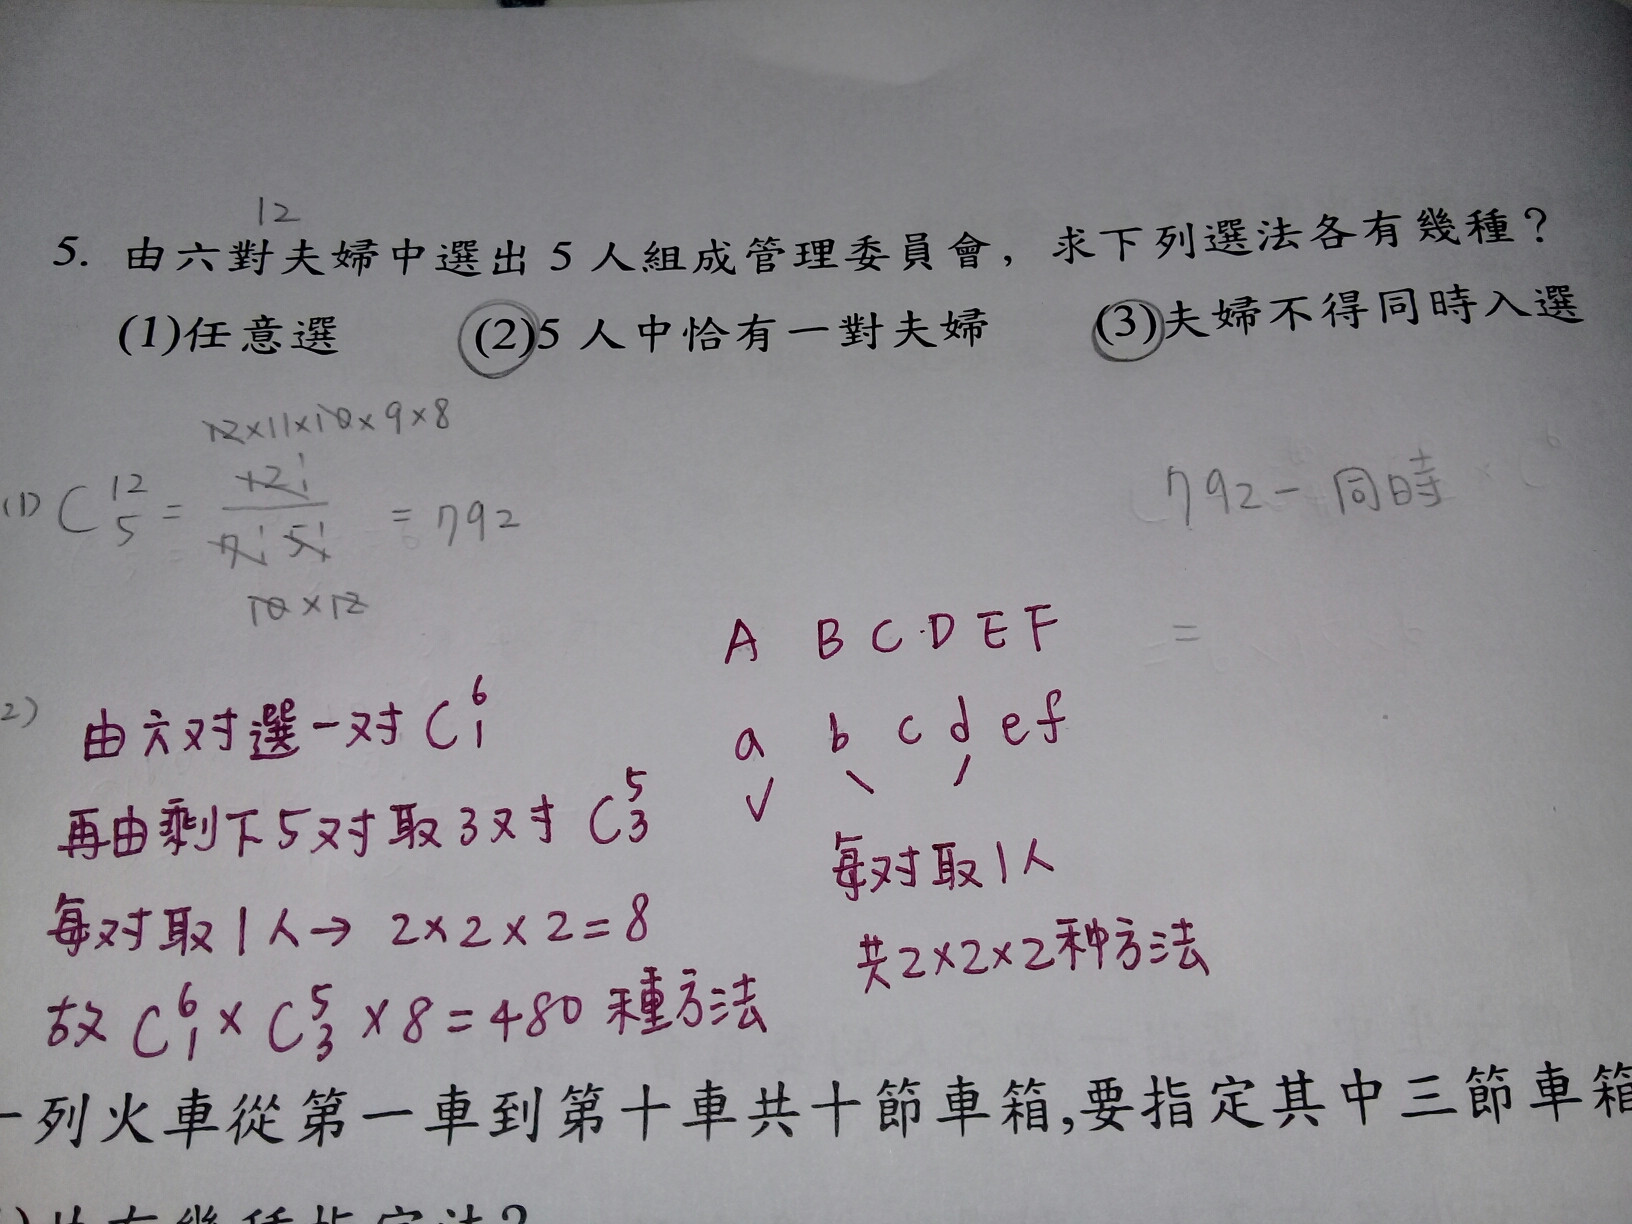 12
5. 由六對夫婦中選出 5 人組成管理委員會，求下列選法各有幾種？
(1)任意選 (2)5 人中恰有一對夫婦 (3)夫婦不得同時入選
12×11×10×9×8
(1) C 12 5 = 12! / 7! 5! = 792
10×12
792-同時
=
A B C D E F
a b c d e f
每对取1人
共2×2×2种方法
2) 由六对選一对 C 6 1
再由剩下5对取3对 C 5 3
每对取1人→ 2×2×2=8
故 C 6 1 × C 5 3 ×8=480 種方法
一列火車從第一車到第十車共十節車箱,要指定其中三節車箱